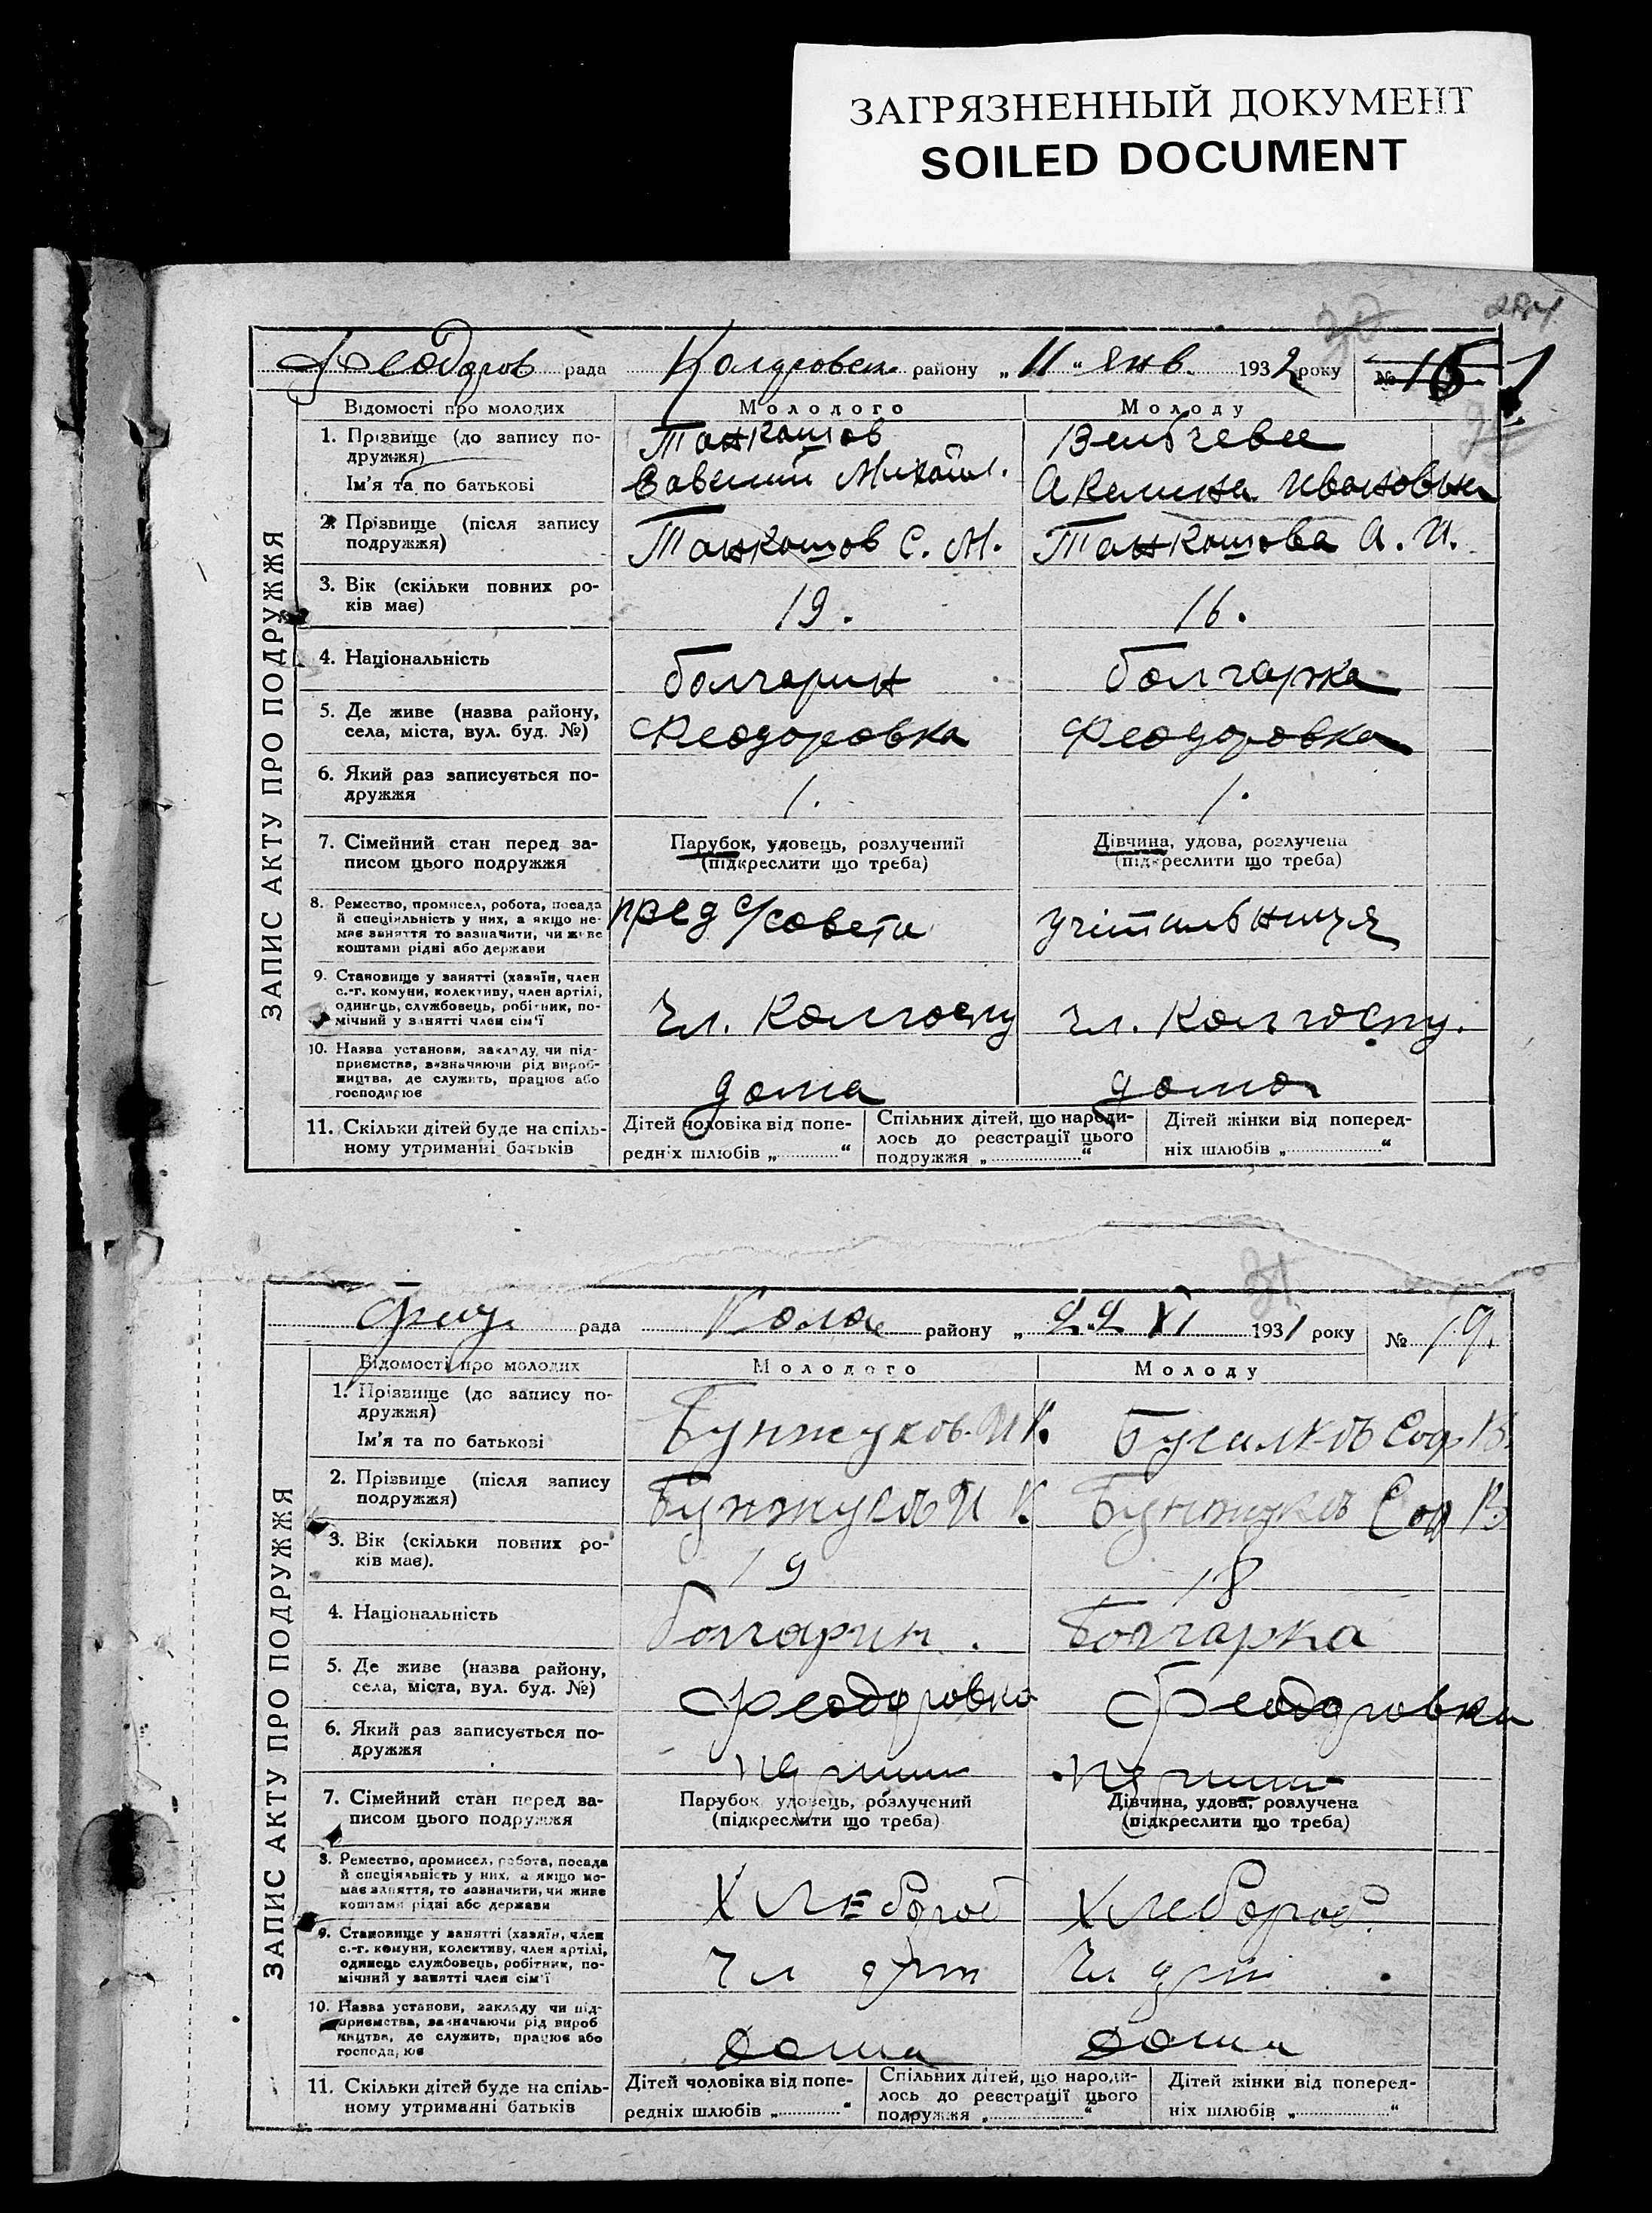 ЗАГРЯЗНЕННЫЙ ДОКУМЕНТ
SOILED DOCUMENT
30
284
Феодоров рада Коларовск. району „11 “ янв. 1932 року № 16 1
ЗАПИС АКТУ ПРО ПОДРУЖЖЯ
Відомості про молодих Молодого Молоду
1. Прізвище (до запису подружжя) Танкошов
Ім'я та по батькові Савелий Михайл. Акелина Ивановна
2. Прізвище (після запису подружжя) Танкошов С. М. Танкошова А. И.
3. Вік (скільки повних років має) 19. 16.
4. Національність болгарин болгарка
5. Де живе (назва району, села, міста, вул. буд. №) Феодоровка Феодоровка
6. Який раз записується подружжя 1. 1.
7. Сімейний стан перед записом цього подружжя Парубок, удовець, розлучений (підкреслити що треба) Дівчина, удова, розлучена (підкреслити що треба)
8. Ремество, промисел, робота, посада й спеціяльність у них, а якщо немає заняття то зазначити, чи живе коштами рідні або держави пред с/совета учітильниця
9. Становище у занятті (хазяїн, член с.-г. комуни, колективу, член артілі, одинець, службовець, робітник, помічний у занятті член сім'ї Чл. Колгоспу чл. Колгоспу.
10. Назва установи, закладу, чи підприємства, зазначаючи рід виробництва, де служить, працює або господарює дома дома
11. Скільки дітей буде на спільному утриманні батьків Дітей чоловіка від попередніх шлюбів „ “ Спільних дітей, що народилось до реєстрації цього подружжя „ “ Дітей жінки від попередніх шлюбів „ “
31
рада району „ 22 XI 1931 року № 19.
ЗАПИС АКТУ ПРО ПОДРУЖЖЯ
Відомості про молодих Молодого Молоду
1. Прізвище (до запису подружжя)
Ім'я та по батькові Бунжуков И К.
2. Прізвище (після запису подружжя) Бунжуков И К
3. Вік (скільки повних років має). 19 18
4. Національність болгарин. Болгарка
5. Де живе (назва району, села, міста, вул. буд. №) Феодоровка Феодоровка
6. Який раз записується подружжя
7. Сімейний стан перед записом цього подружжя Парубок, удовець, розлучений (підкреслити що треба) Дівчина, удова, розлучена (підкреслити що треба)
8. Ремество, промисел, робота, посада й спеціяльність у них, а якщо немає заняття, то зазначити, чи живе коштами рідні або держави Хлебороб Хлебороб
9. Становище у занятті (хазяїн, член с.-г. комуни, колективу, член артілі, одинець службовець, робітник, помічний у занятті член сім'ї Чл арт Чл арт
10. Назва установи, закладу чи підприємства, зазначаючи рід виробництва, де служить, працює або господарює Дома Дома
11. Скільки дітей буде на спільному утриманні батьків Дітей чоловіка від попередніх шлюбів „ “ Спільних дітей, що народилось до реєстрації цього подружжя „ “ Дітей жінки від попередніх шлюбів „ “